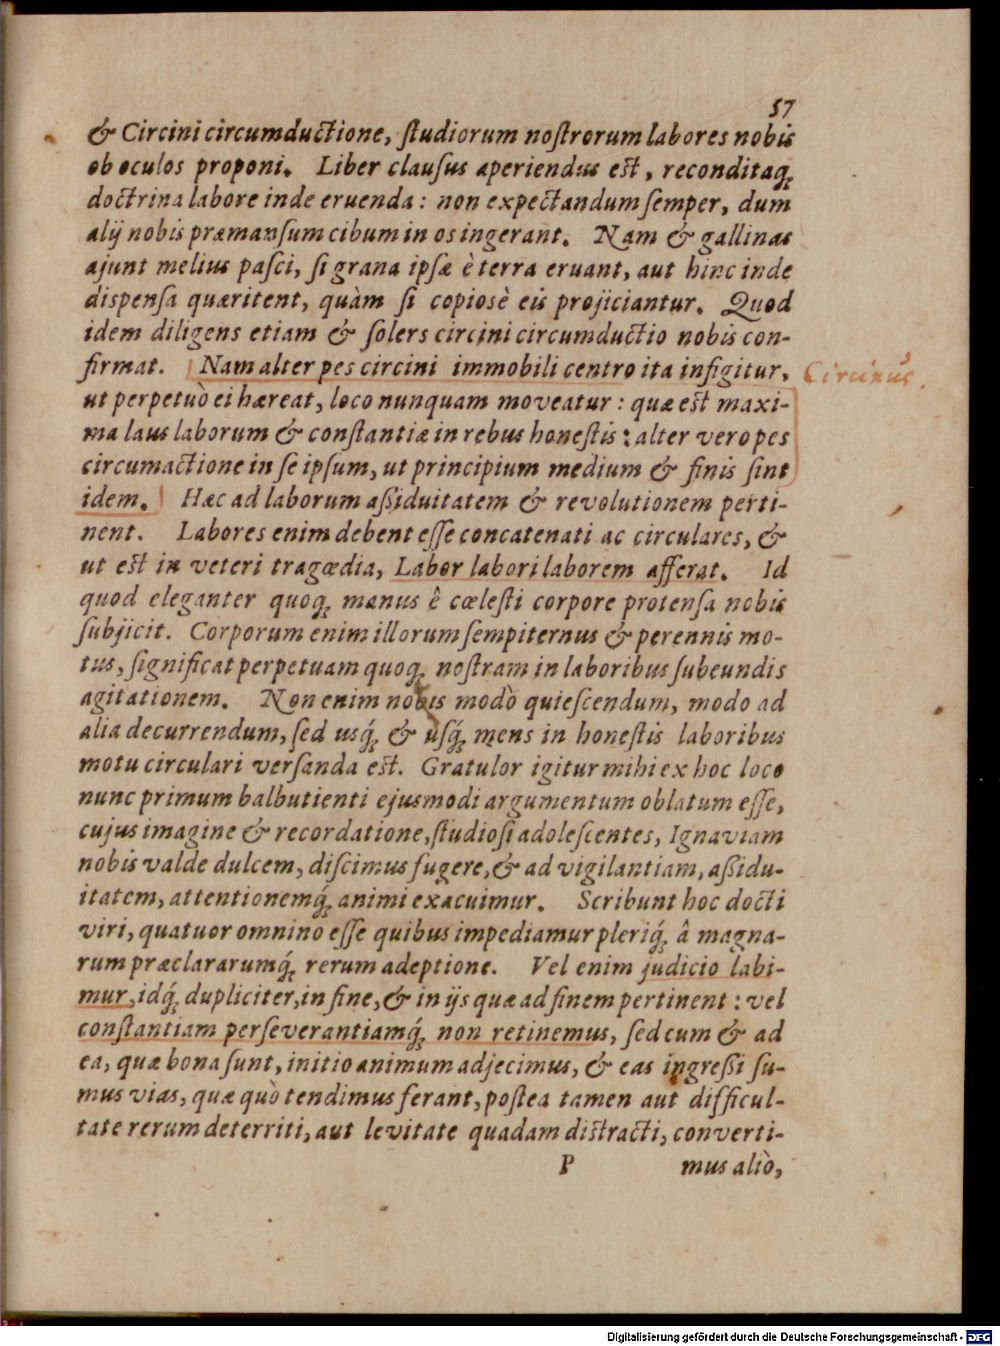 57
& Circini circumductione, ſtudiorum noſtrorum labores nobis
ob oculos proponi. Liber clauſus aperiendus est, reconditaq;
doctrina labore inde eruenda: non expectandum ſemper, dum
alij nobis præmanſum cibum in os ingerant. Nam & gallinas
ajunt melius paſci, ſi grana ipſæ è terra eruant, aut hinc inde
dispenſa quæritent, quàm ſi copiosè eis projiciantur. Quod
idem diligens etiam & ſolers circini circumductio nobis con-
firmat. Nam alter pes circini immobili centro ita infigitur,
Circinus.
ut perpetuò ei hæreat, loco nunquam moveatur: quæ est maxi-
ma laus laborum & conſtantiæ in rebus honeſtis: alter vero pes
circumactione in ſe ipſum, ut principium medium & finis ſint
idem. Hæc ad laborum aßiduitatem & revolutionem perti-
nent. Labores enim debent eſſe concatenati ac circulares, &
ut est in veteri tragœdia, Labor labori laborem afferat. Id
quod eleganter quoq; manus ê cœleſti corpore protenſa nobis
ſubjicit. Corporum enim illorum ſempiternus & perennis mo-
tus, ſignificat perpetuam quoq; noſtram in laboribus ſubeundis
agitationem. Non enim nobis modò quieſcendum, modo ad
alia decurrendum, ſed usq́; & uſq́; mens in honeſtis laboribus
motu circulari verſanda est. Gratulor igitur mihi ex hoc loco
nunc primum balbutienti ejusmodi argumentum oblatum eſſe,
cujus imagine & recordatione, ſtudioſi adoleſcentes, Ignaviam
nobis valde dulcem, diſcimus fugere, & ad vigilantiam, aßidu-
itatem, attentionemq́; animi exacuimur. Scribunt hoc docti
viri, quatuor omnino eſſe quibus impediamur pleriq́; â magna-
rum præclararumq́; rerum adeptione. Vel enim judicio labi-
mur, idq́; dupliciter, in fine, & in ijs quæ ad finem pertinent: vel
conſtantiam perſeverantiamq́; non retinemus, ſed cum & ad
ea, quæ bona ſunt, initio animum adjecimus, & eas ingreßi ſu-
mus vias, quæ quò tendimus ferant, poſtea tamen aut difficul-
tate rerum deterriti, aut levitate quadam diſtracti, converti-
P mus aliò,
Digitalisierung gefördert durch die Deutsche Forschungsgemeinschaft - DFG